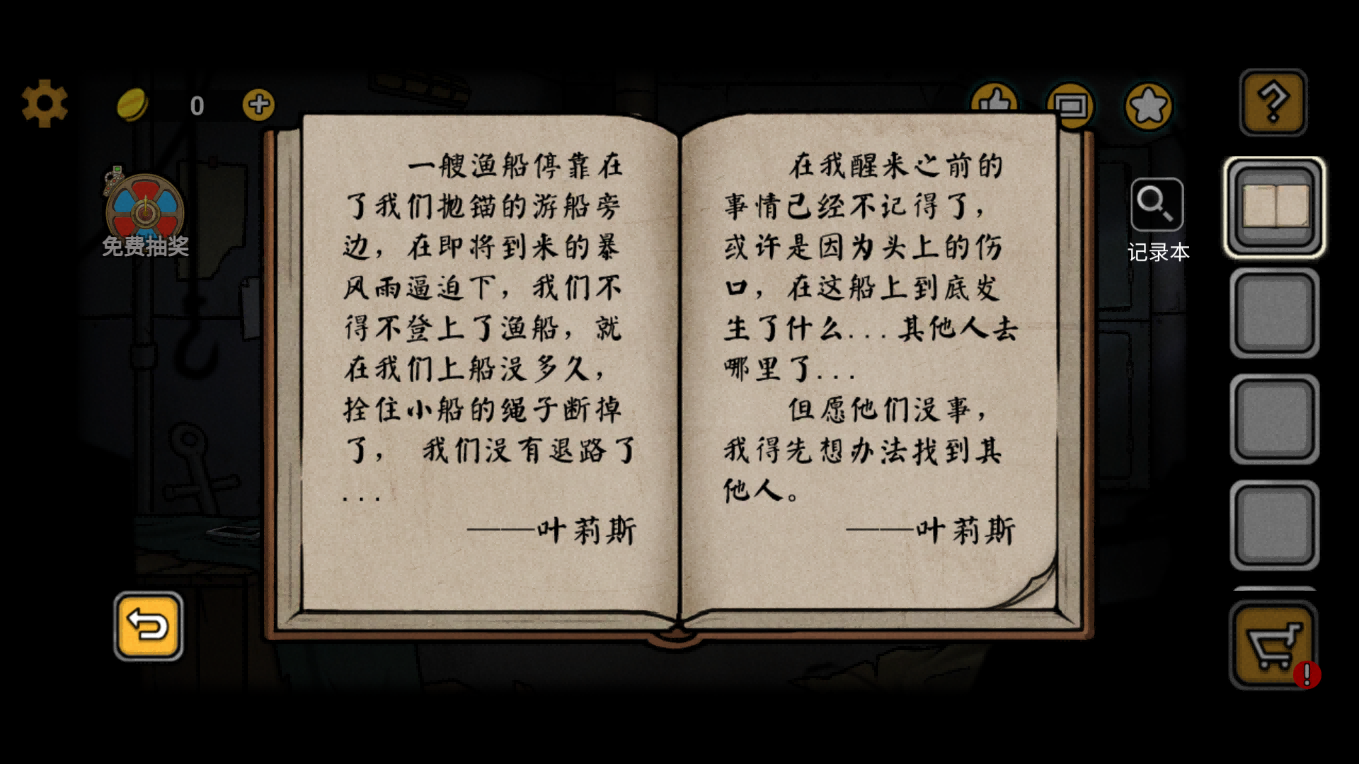 0
免费抽奖
一艘渔船停靠在
了我们抛锚的游船旁
边，在即将到来的暴
风雨逼迫下，我们不
得不登上了渔船，就
在我们上船没多久，
拴住小船的绳子断掉
了， 我们没有退路了
...
——叶莉斯
在我醒来之前的
事情已经不记得了，
或许是因为头上的伤
口，在这船上到底发
生了什么...其他人去
哪里了...
但愿他们没事，
我得先想办法找到其
他人。
——叶莉斯
记录本